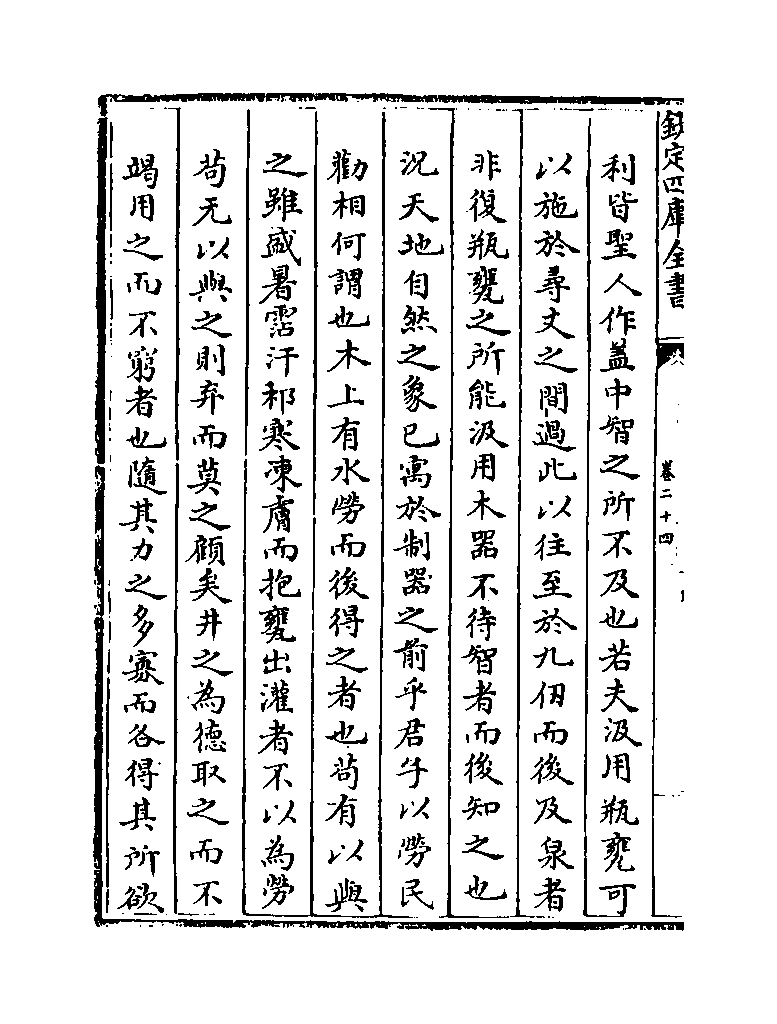 欽定四庫全書
卷二十四
利皆聖人作蓋中智之所不及也若夫汲用瓶甕可
以施於尋丈之間過此以往至於九仞而後及泉者
非復瓶甕之所能汲用木器不待智者而後知之也
況天地自然之象已寓於制器之前乎君子以勞民
勸相何謂也木上有水勞而後得之者也苟有以與
之雖盛暑霑汗祁寒凍膚而抱甕出灌者不以為勞
苟无以與之則弃而莫之顧矣井之為德取之而不
竭用之而不窮者也隨其力之多寡而各得其所欲